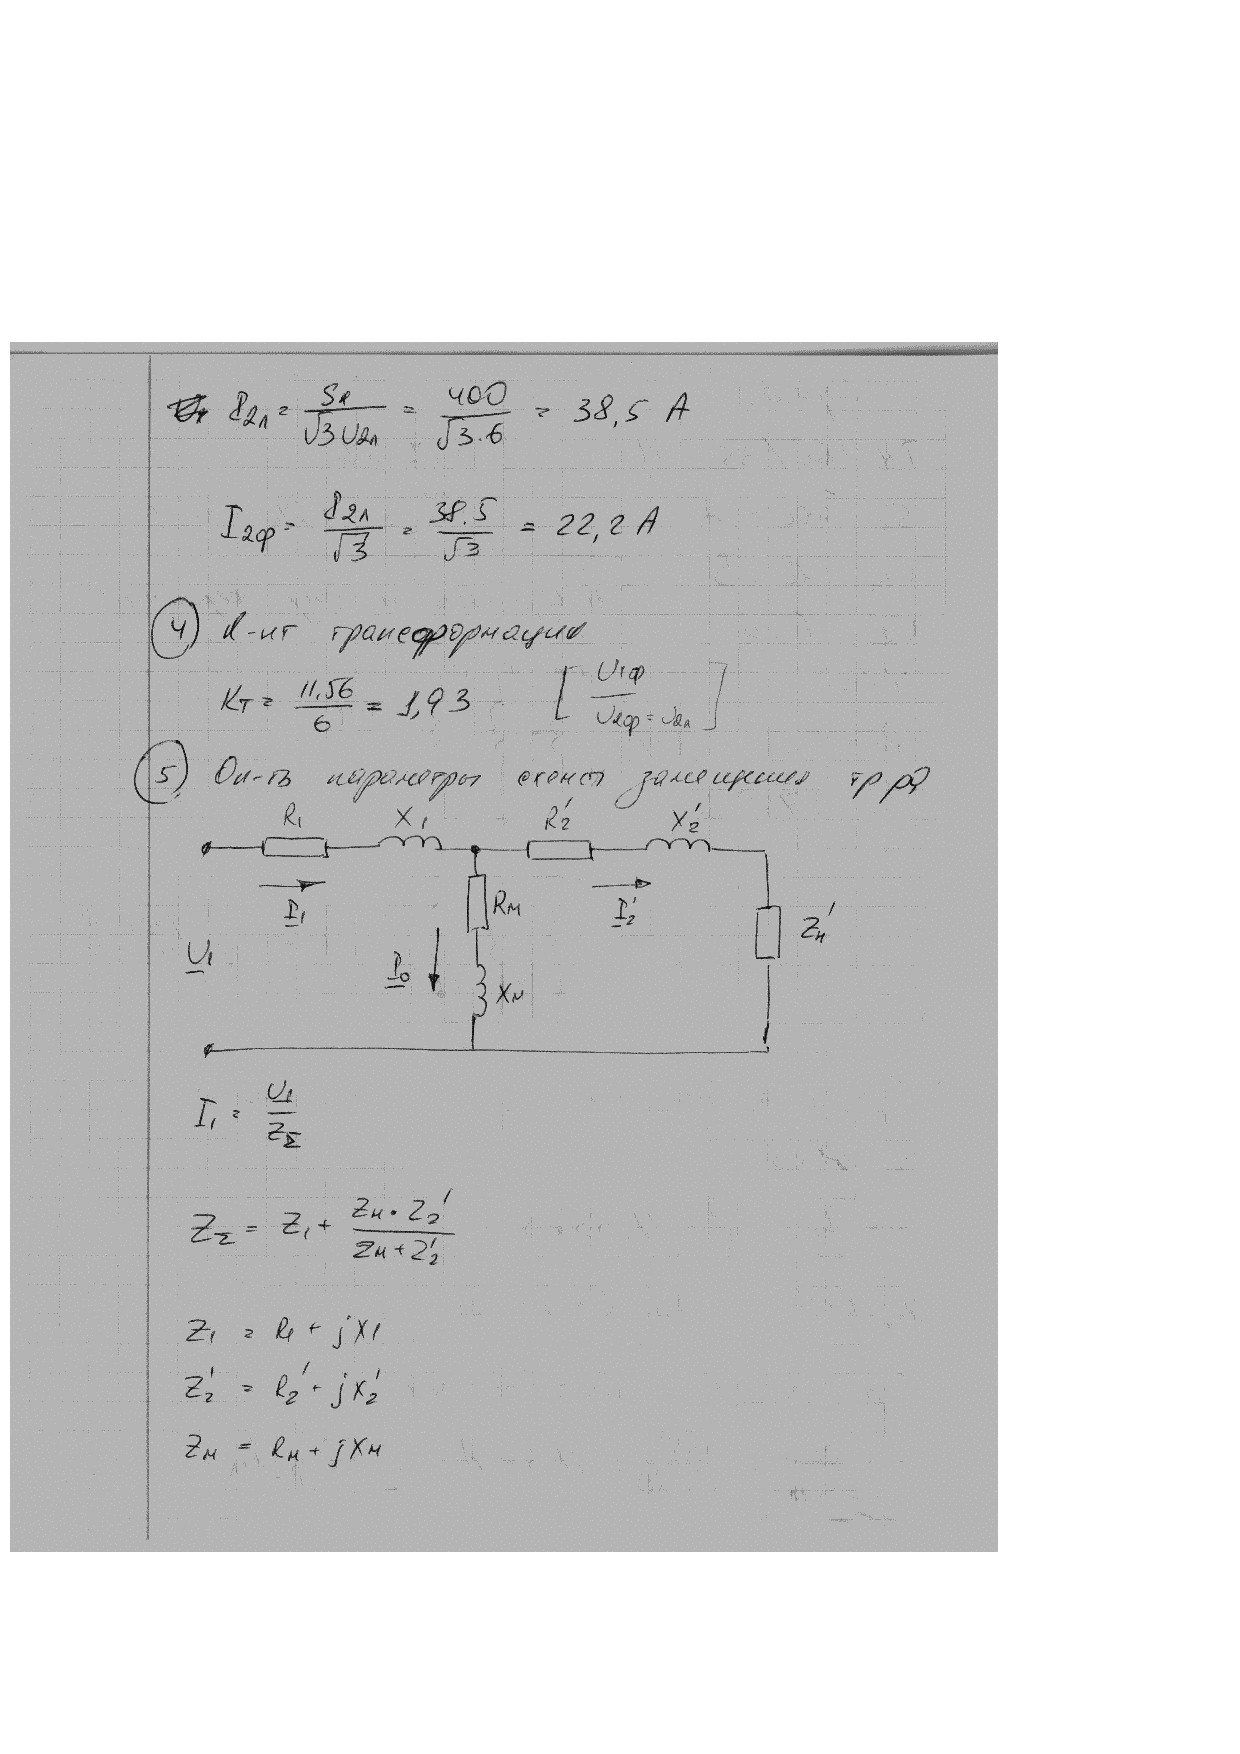 I₂л = Sн / √3 U₂л = 400 / √3·6 = 38,5 А
I₂ф = I₂л / √3 = 38.5 / √3 = 22,2 А
4 К-нт трансформации
Kт = 11,56 / 6 = 1,93 [ U₁ф / U₂ф = U₂л ]
5 Оп-ть параметры схемы замещения тр-ра
R₁ X₁ R₂' X₂'
I₁ Rм I₂' Zн'
U₁ I₀ Xм
I₁ = U₁ / ZΣ
ZΣ = Z₁ + Zм · Z₂' / Zм + Z₂'
Z₁ = R₁ + jX₁
Z₂' = R₂' + jX₂'
Zм = Rм + jXм